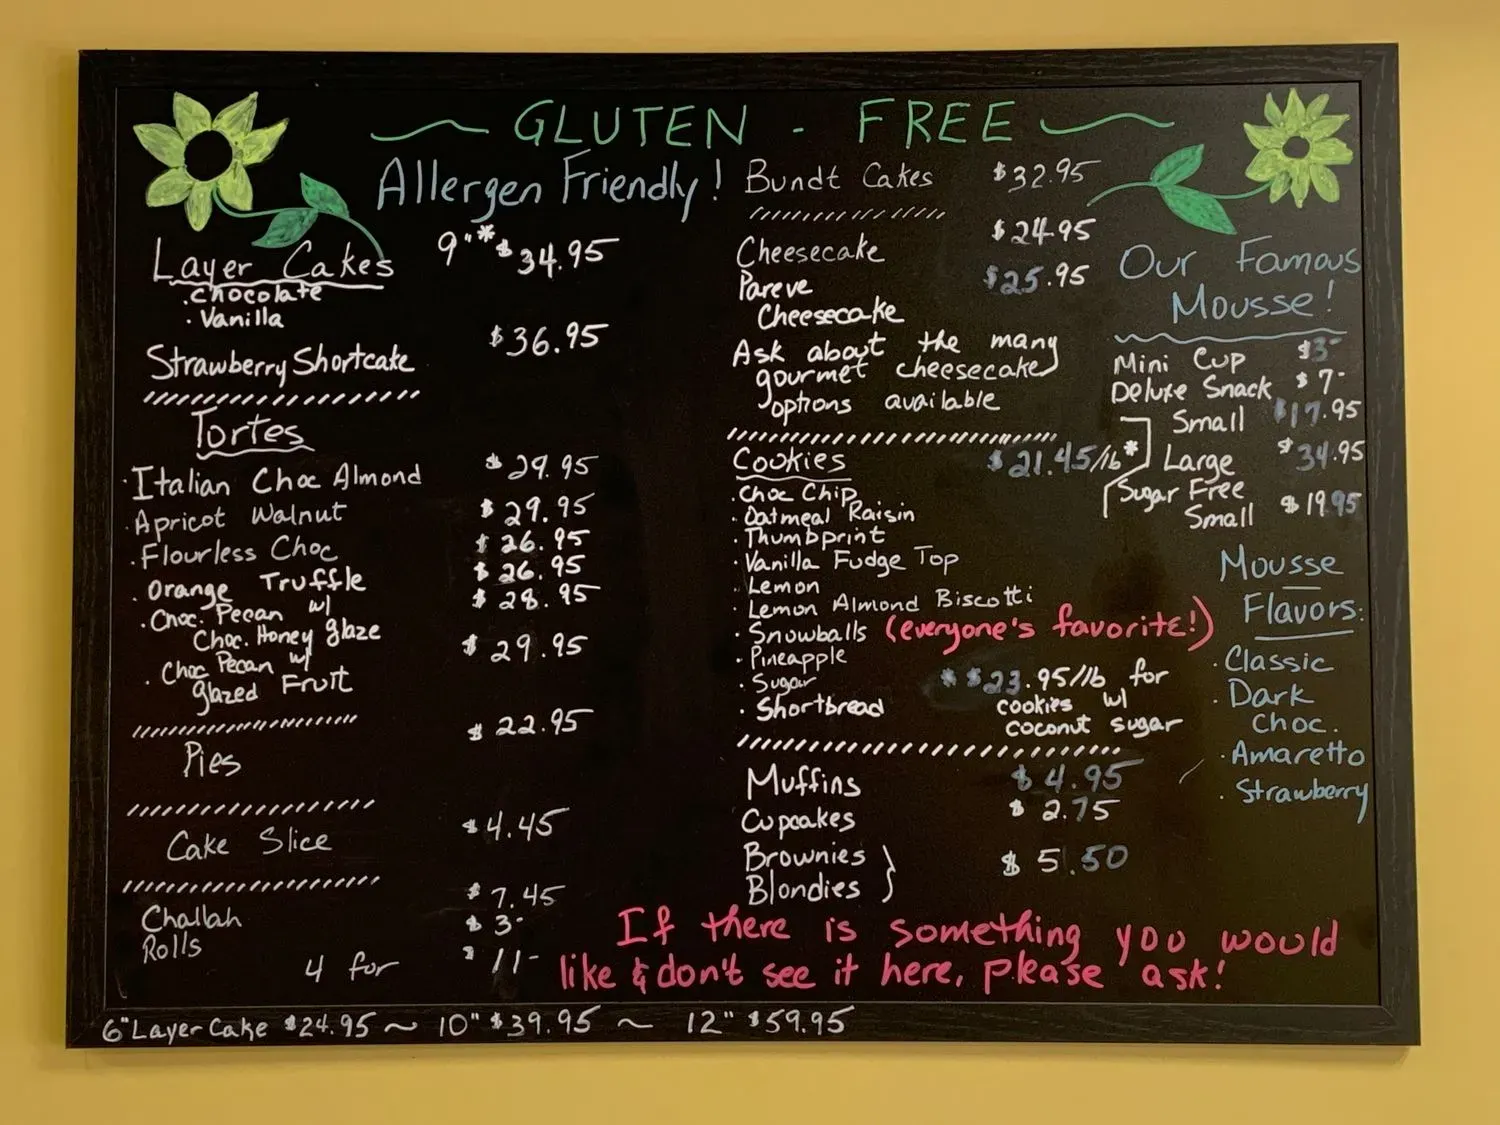 GLUTEN - FREE
Allergen Friendly!
Layer Cakes 9"* $34.95
. Chocolate
. Vanilla
Strawberry Shortcake $36.95
Tortes
. Italian Choc Almond $29.95
. Apricot Walnut $29.95
. Flourless Choc $26.95
. Orange Truffle $26.95
. Choc. Pecan w/ $28.95
Choc. Honey glaze
. Choc Pecan w/ $29.95
glazed Fruit
Pies $22.95
Cake Slice $4.45
Challah $7.45
Rolls $3-
4 for $11-
Bundt Cakes $32.95
Cheesecake $24.95
Pareve $25.95
Cheesecake
Ask about the many
gourmet cheesecake
options available
Cookies $21.45/lb*
. Choc Chip
. Oatmeal Raisin
. Thumbprint
. Vanilla Fudge Top
. Lemon
. Lemon Almond Biscotti
. Snowballs (everyone's favorite!)
. Pineapple
. Sugar
. Shortbread
* $23.95/lb for
cookies w/
coconut sugar
Muffins $4.95
Cupcakes $2.75
Brownies } $5.50
Blondies
Our Famous
Mousse!
Mini Cup $3-
Deluxe Snack $7-
Small $17.95
Large $34.95
Sugar Free
Small $19.95
Mousse
Flavors:
. Classic
. Dark
Choc.
. Amaretto
. Strawberry
If there is something you would
like & don't see it here, please ask!
6" Layer Cake $24.95 ~ 10" $39.95 ~ 12" $59.95